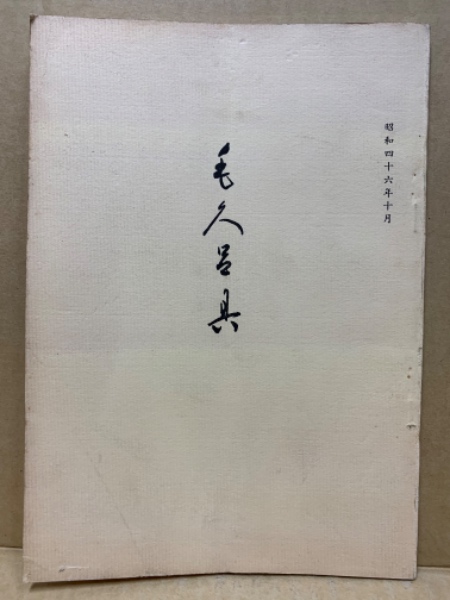 昭和四十六年十月
毛久呂具